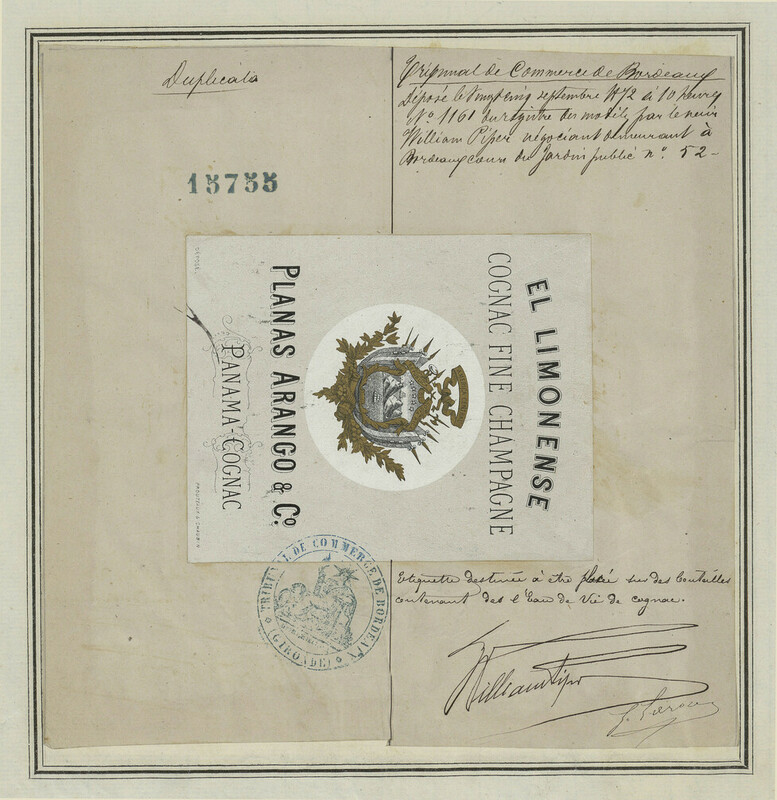 Duplicata
15755
Tribunal de Commerce de Bordeaux
Déposé le vingt cinq septembre 1872 à 10 heures
N° 1161 du registre des modèles, par le sieur
William Piper négociant demeurant à
Bordeaux cours du Jardin public n° 52 -
EL LIMONENSE
COGNAC FINE CHAMPAGNE
PLANAS ARANGO & Co.
PANAMA-COGNAC
DÉPOSÉ
TRIBUNAL DE COMMERCE DE BORDEAUX
(GIRONDE)
Etiquette destinée à être placée sur des bouteilles
contenant des l'Eau de Vie de cognac.
William Piper